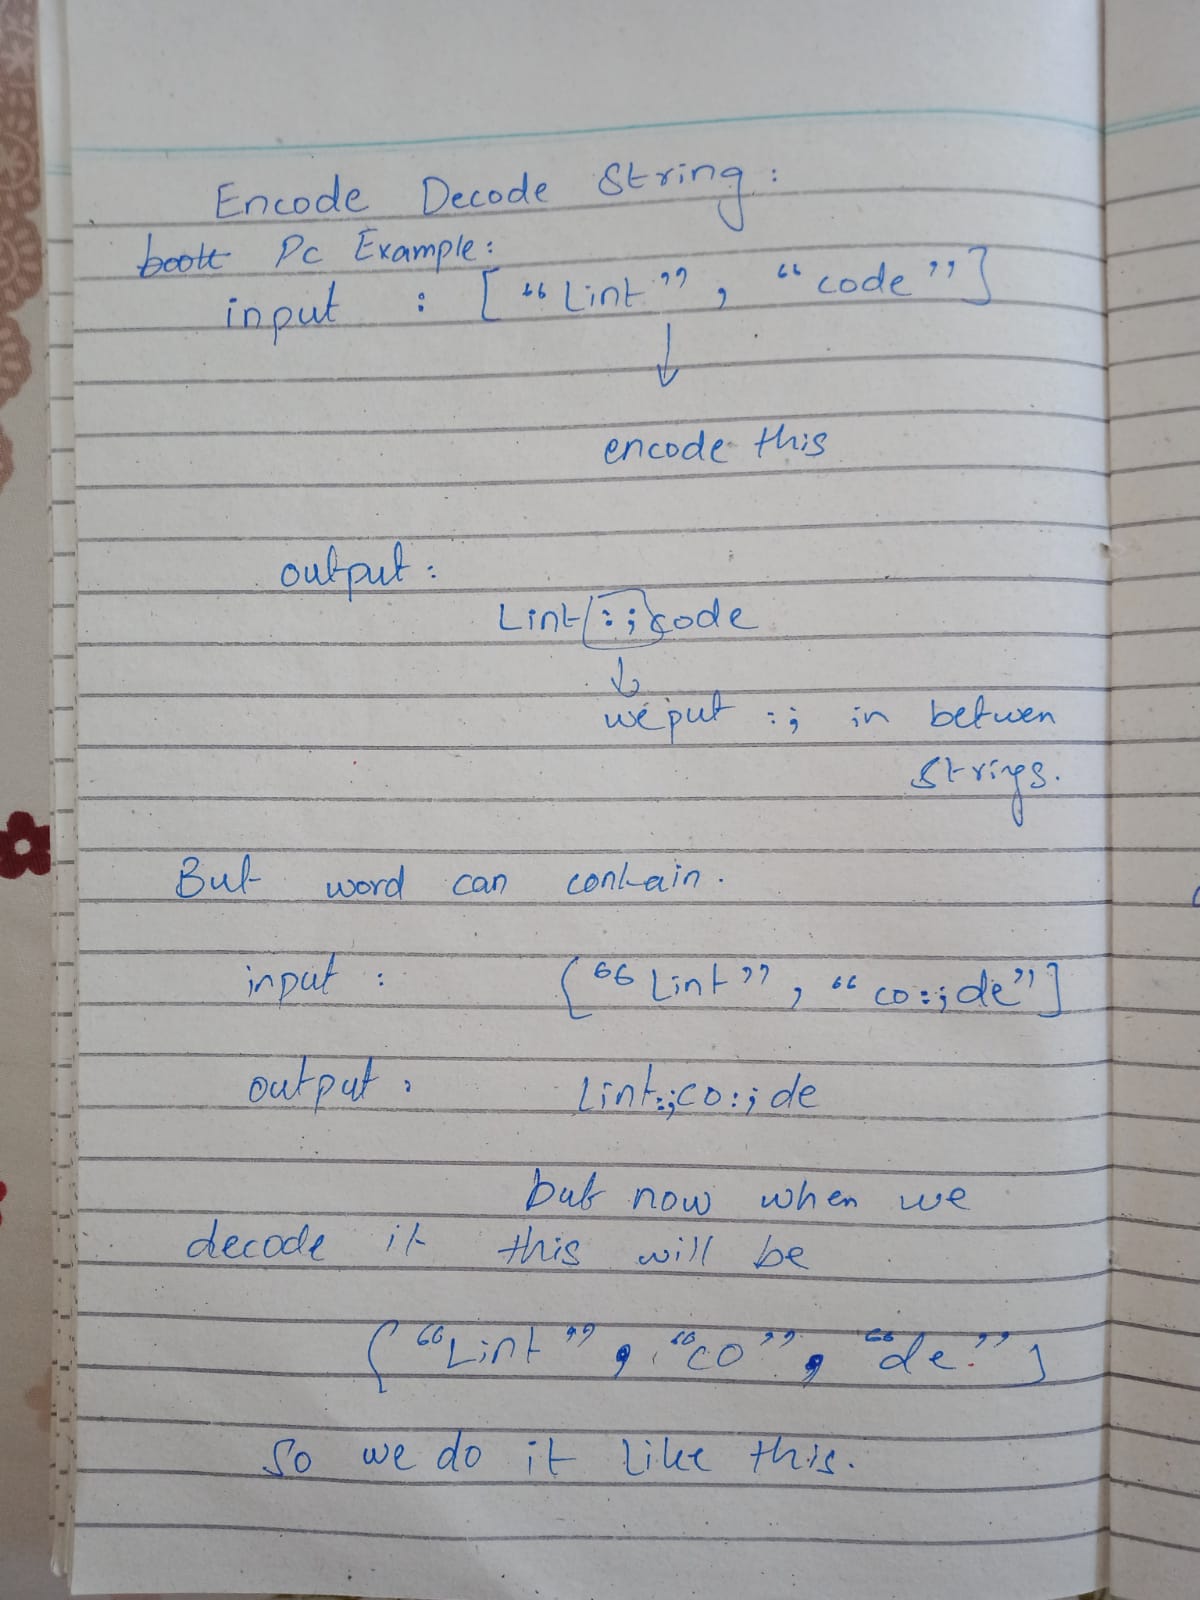 Encode Decode String :
Pc Example :
input : [ "Lint" , "code" ]
encode this
output :
Lint:;code
we put :; in betwen
strings.
But word can contain.
input : ["Lint" , "co:;de"]
output : Lint:;co:;de
but now when we
decode it this will be
["Lint" , "co" , "de"]
So we do it like this.